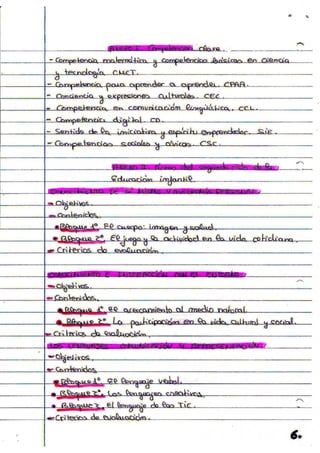 Anexo I. Competencias clave.
- Competencia matemática y competencias básicas en ciencia
y tecnología CMCT.
- Competencia para aprender a aprender. CPAA.
- Conciencia y expresiones culturales. CEC.
- Competencia en comunicación lingüística. CCL.
- Competencia digital. CD.
- Sentido de la iniciativa y espíritu emprendedor. SIE.
- Competencias sociales y cívicas. CSC.
Educación infantil
- Objetivos.
- Contenidos.
Bloque 1º El cuerpo: imagen y salud.
Bloque 2º El juego y la actividad en la vida cotidiana.
- Criterios de evaluación.
- Objetivos.
- Contenidos.
Bloque 1º El acercamiento al medio natural.
Bloque 2º La participación en la vida cultural y social.
- Criterios de evaluación.
- Objetivos.
- Contenidos
Bloque 1º El lenguaje verbal.
Bloque 2º Los lenguajes creativos.
Bloque 3. El lenguaje de las TIC.
- Criterios de evaluación.
6.